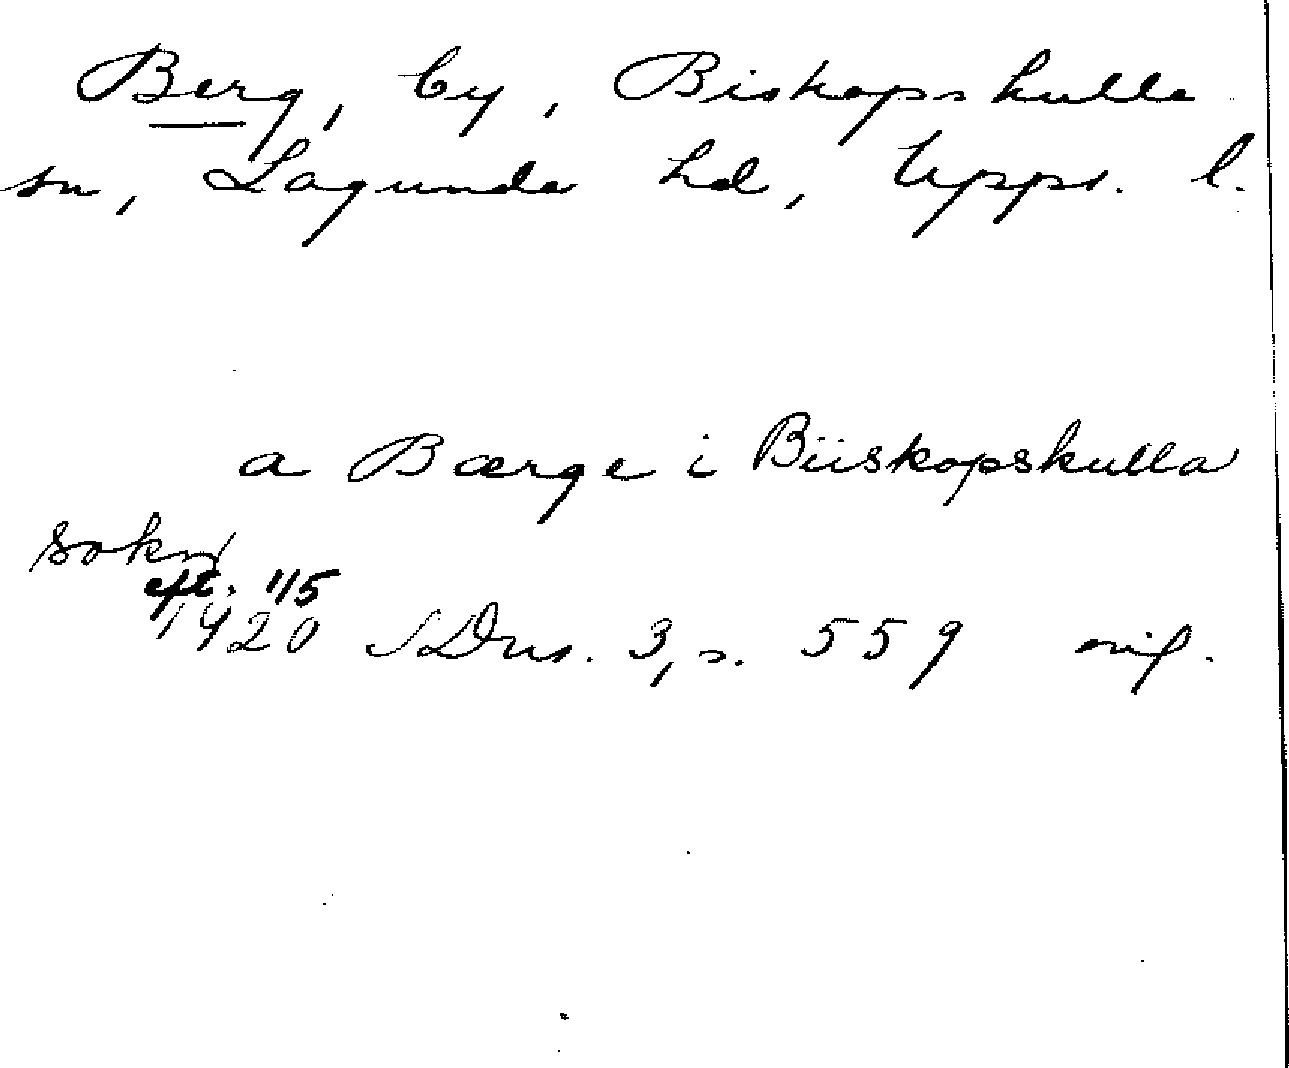 Berg, by, Biskopskulla
sn, Lagunda hd, Upps. l.
a Bærge i Biiskopskulla
sokn
eft. 1/5
1420 SDns. 3, s. 559 orig.